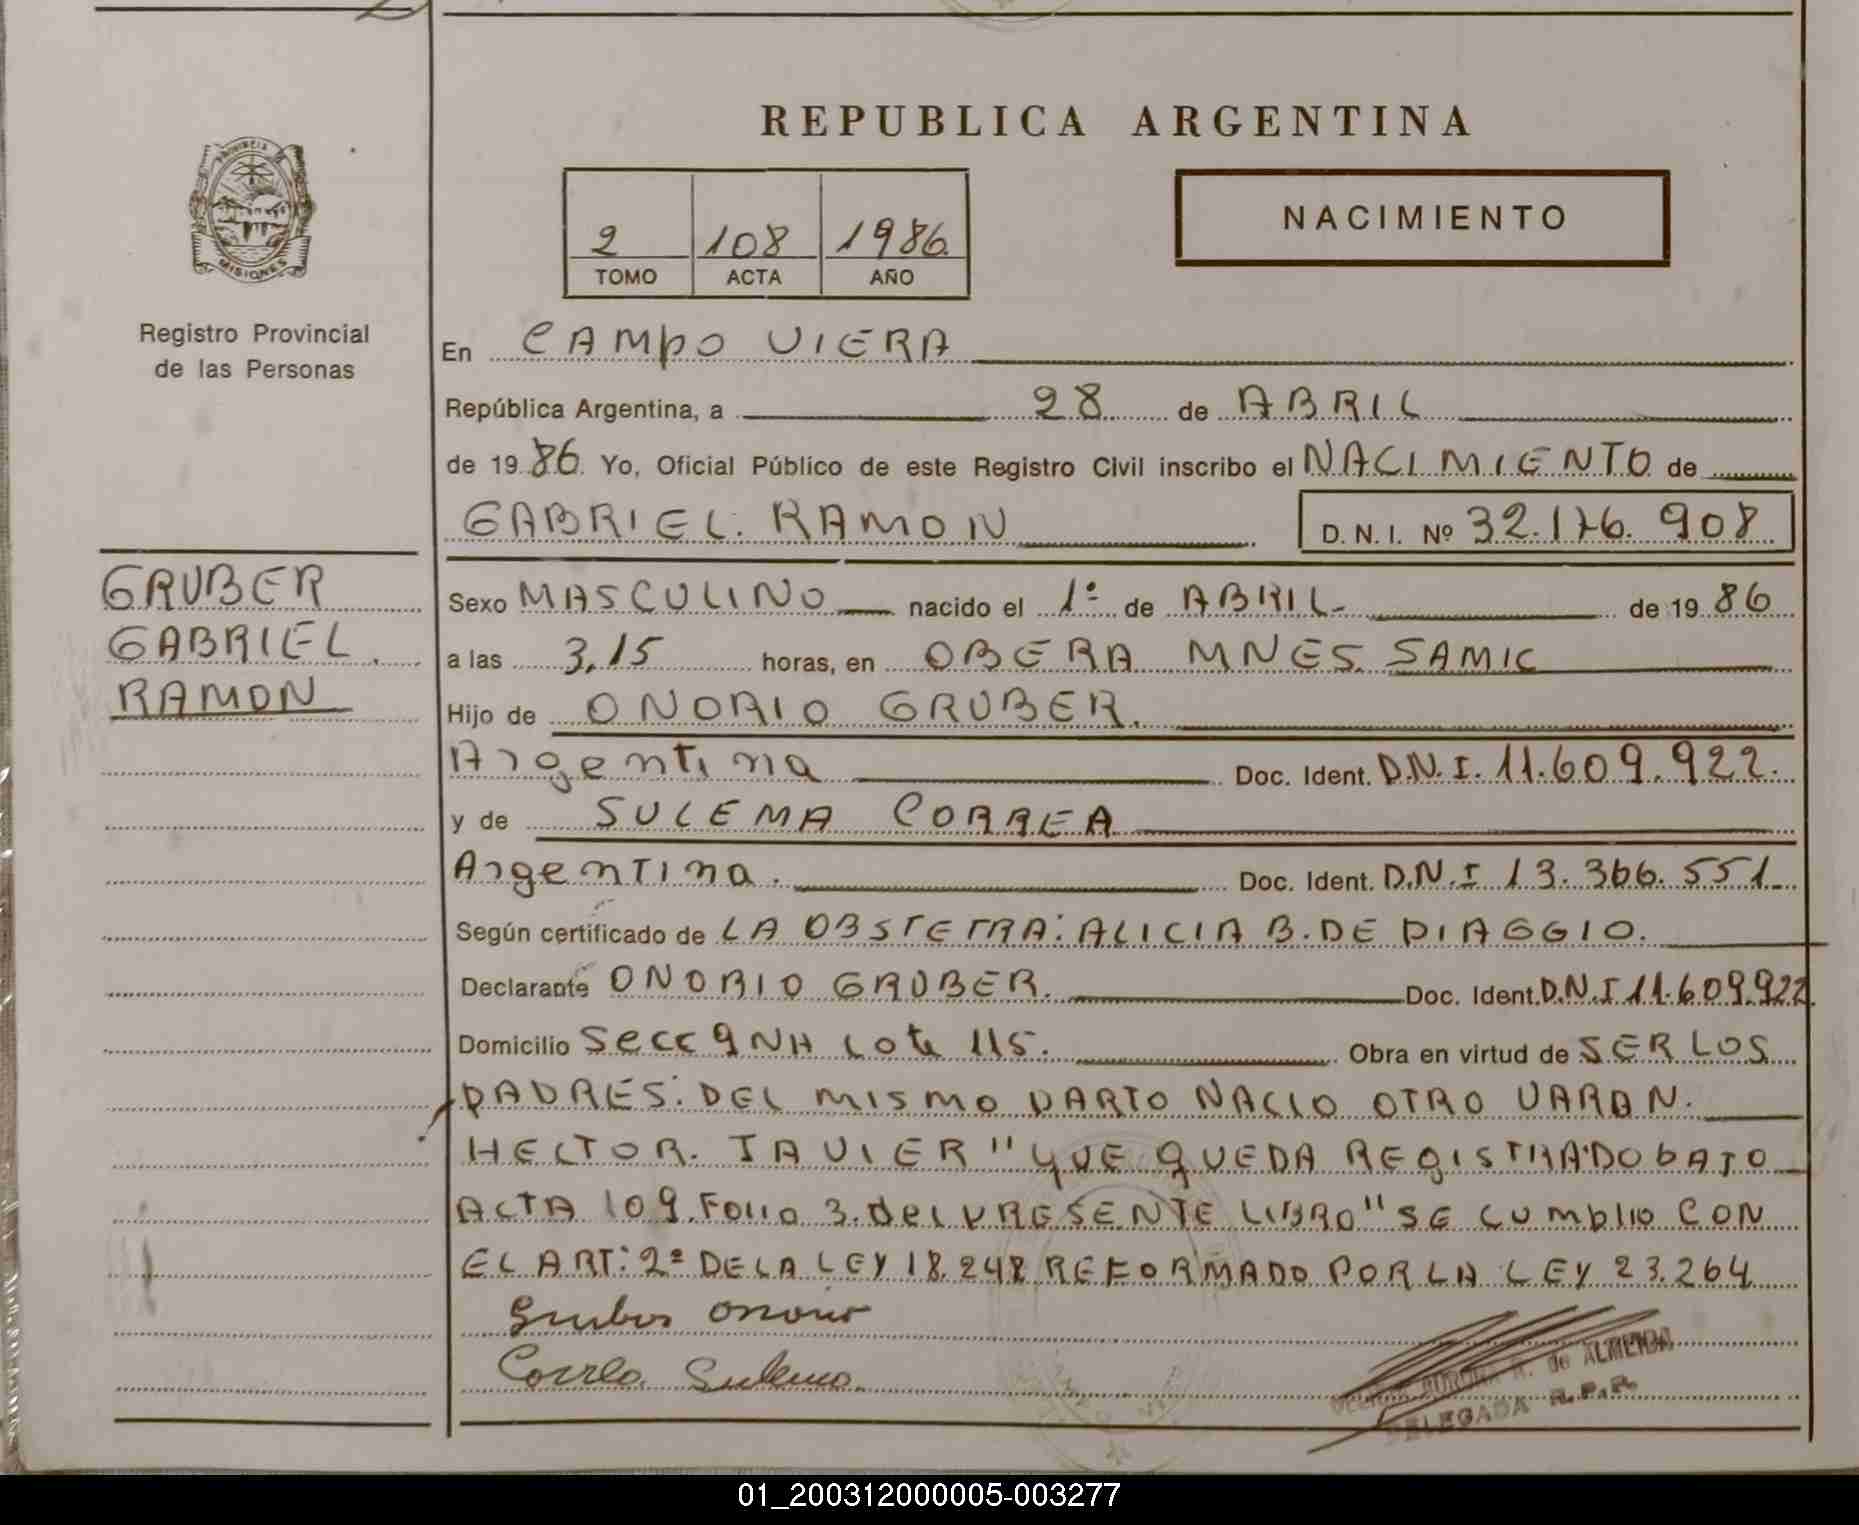 REPUBLICA ARGENTINA
PROVINCIA DE
MISIONES
NACIMIENTO
2 108 1986
TOMO ACTA AÑO
Registro Provincial
de las Personas
En CAMPO VIERA
República Argentina, a 28 de ABRIL
de 1986. Yo, Oficial Público de este Registro Civil inscribo el NACIMIENTO de
GABRIEL. RAMON D. N. I. Nº 32.176.908
GRUBER
GABRIEL.
RAMON
Sexo MASCULINO nacido el 1º de ABRIL de 1986
a las 3,15 horas, en OBERA MNES. SAMIC
Hijo de ONORIO GRUBER.
Argentina Doc. Ident. D.N.I. 11.609.922.
y de SULEMA CORREA
Argentina. Doc. Ident. D.N.I 13.366.551
Según certificado de LA OBSTETRA: ALICIA B. DE PIAGGIO.
Declarante ONORIO GRUBER. Doc. Ident. D.N.I 11.609.922
Domicilio Secc 9 NH Lote 115. Obra en virtud de SER LOS
PADRES: DEL MISMO PARTO NACIO OTRO VARON.
HECTOR. JAVIER " QUE QUEDA REGISTRADO BAJO
ACTA 109. Folio 3. del PRESENTE LIBRO" SE CUMPLIO CON
EL ART: 2º DE LA LEY 18.248 REFORMADO POR LA LEY 23.264
Gruber Onorio
Correa Sulema.
AURORA R. de ALMEIDA
DELEGADA R.P.P.
01_200312000005-003277